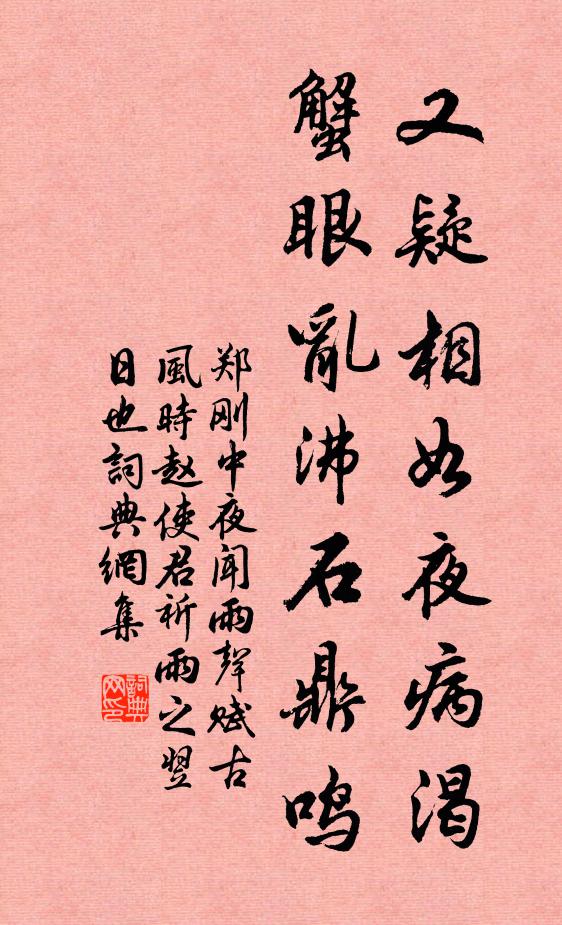 又疑相如夜病渴
蟹眼亂沸石鼎鳴
郑刚中夜闻雨聲赋古
風時赵使君祈雨之翌
日也詞典網集
詞典
网印